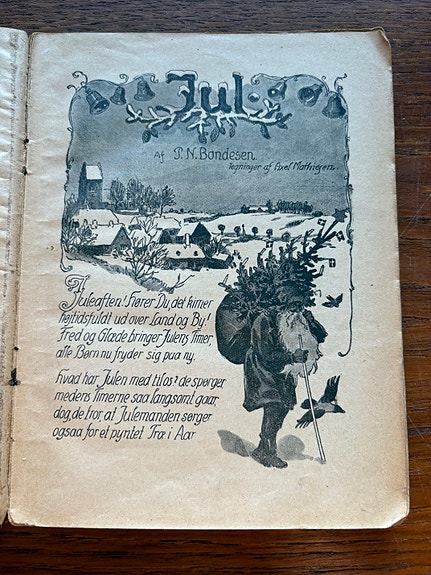 Jul
Af P. N. Bondesen.
Tegninger af Axel Mathiesen.
Juleaften! Hører Du, det kimer
højtidsfuldt ud over Land og By!
Fred og Glæde bringer Julens Timer,
alle Børn nu fryder sig paa ny.
Hvad har Julen med til os? de spørger
medens Timerne saa langsomt gaar,
dog, de tror, at Julemanden sørger
ogsaa for et pyntet Træ i Aar